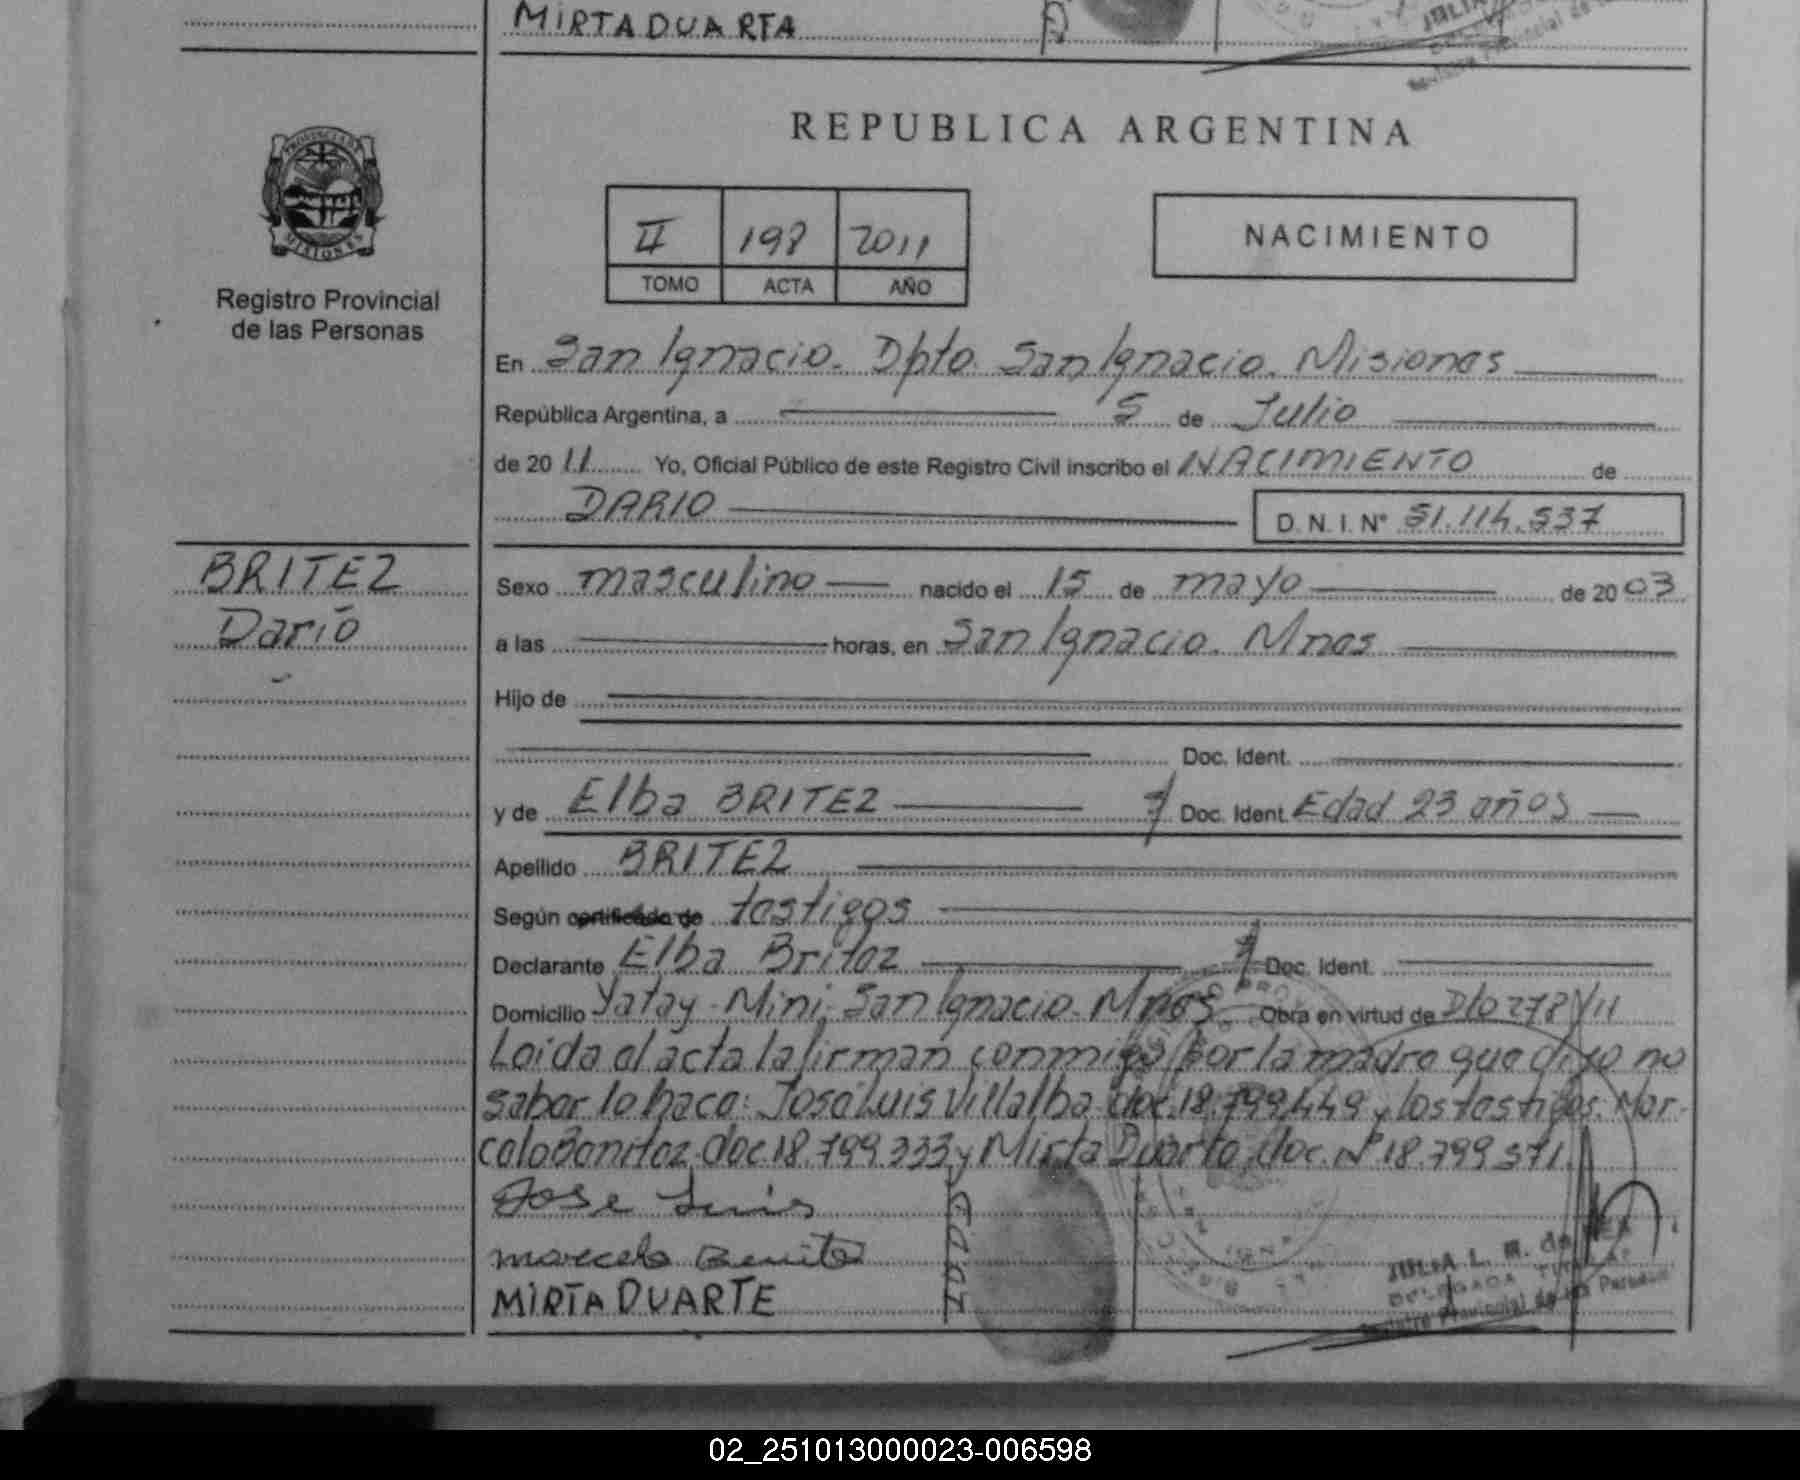 MIRTA DUARTA
REPUBLICA ARGENTINA
PROVINCIA DE
MISIONES
Registro Provincial
de las Personas
II 198 2011
TOMO ACTA AÑO
NACIMIENTO
En San Ignacio. Dpto. San Ignacio. Misiones
República Argentina, a 5 de Julio
de 20 11 Yo, Oficial Público de este Registro Civil inscribo el NACIMIENTO de
DARIO D.N.I. Nº 51.114.537
BRITEZ
Darío
Sexo masculino nacido el 15 de mayo de 20 03
a las horas, en San Ignacio. Mnes
Hijo de
Doc. Ident.
y de Elba BRITEZ Doc. Ident. Edad 23 años
Apellido BRITEZ
Según certificado de testigos
Declarante Elba Britez Doc. Ident.
Domicilio Yatay-Mini-San Ignacio-Mnes Obra en virtud de Dto 278/11
Leída el acta la firman conmigo por la madre que dijo no
saber lo hace: José Luis Villalba doc. 18.799.449 y los testigos. Mar-
celo Benitez doc 18.799.333 y Mirta Duarte doc. Nº 18.799.371.
Jose Luis
marcelo Benitez
MIRTA DUARTE
JULIA L. R. de
DELEGADA TITULAR
Registro Provincial de las Personas
02_251013000023-006598